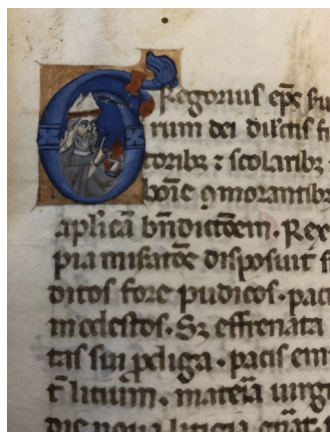 Gregorius ep̃c
rum dei dilc̃tis
toribꝫ ⁊ scolaribꝫ
bõie ꝯmorantibꝫ
apl̃icã bñdictõem. Rex
pia misatõe disposuit
ditos fore pudicos. paci
modestos. Sꝫ effrenata
tas sui ꝓdiga. pacis em
t̃ litium. mateĩa iurgi
die noua litigia